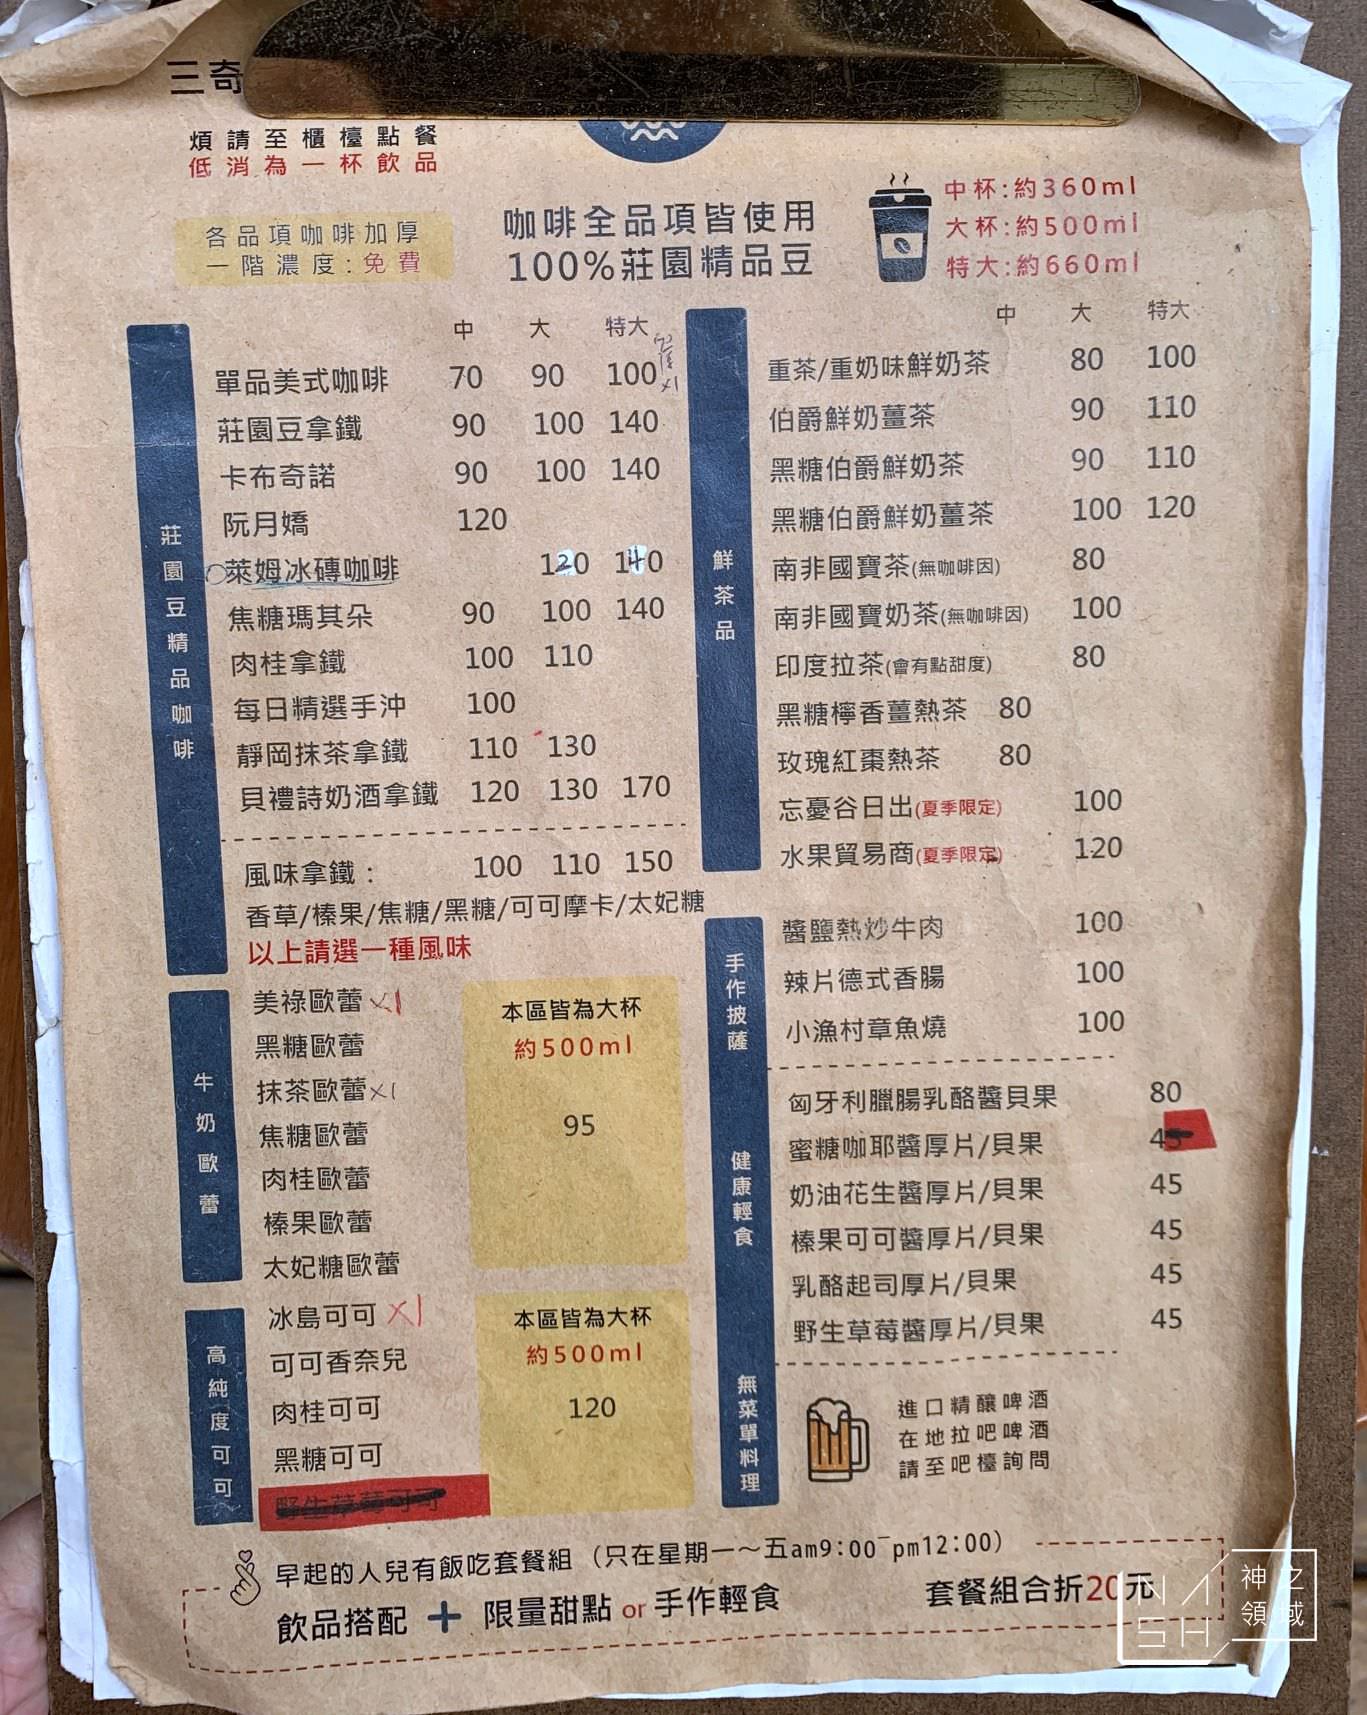 三奇
煩請至櫃檯點餐
低消為一杯飲品
各品項咖啡加厚
一階濃度:免費
咖啡全品項皆使用
100%莊園精品豆
中杯:約360ml
大杯:約500ml
特大:約660ml
莊園豆精品咖啡
中 大 特大
單品美式咖啡 70 90 100
莊園豆拿鐵 90 100 140
卡布奇諾 90 100 140
阮月嬌 120
萊姆冰磚咖啡 120 140
焦糖瑪其朵 90 100 140
肉桂拿鐵 100 110
每日精選手沖 100
靜岡抹茶拿鐵 110 130
貝禮詩奶酒拿鐵 120 130 170
風味拿鐵: 100 110 150
香草/榛果/焦糖/黑糖/可可摩卡/太妃糖
以上請選一種風味
牛奶歐蕾
美祿歐蕾 x1
黑糖歐蕾
抹茶歐蕾 x1
焦糖歐蕾
肉桂歐蕾
榛果歐蕾
太妃糖歐蕾
本區皆為大杯
約500ml
95
高純度可可
冰島可可 x1
可可香奈兒
肉桂可可
黑糖可可
本區皆為大杯
約500ml
120
鮮茶品
中 大 特大
重茶/重奶味鮮奶茶 80 100
伯爵鮮奶薑茶 90 110
黑糖伯爵鮮奶茶 90 110
黑糖伯爵鮮奶薑茶 100 120
南非國寶茶(無咖啡因) 80
南非國寶奶茶(無咖啡因) 100
印度拉茶(會有點甜度) 80
黑糖檸香薑熱茶 80
玫瑰紅棗熱茶 80
忘憂谷日出(夏季限定) 100
水果貿易商(夏季限定) 120
手作披薩
醬鹽熱炒牛肉 100
辣片德式香腸 100
小漁村章魚燒 100
健康輕食
匈牙利臘腸乳酪醬貝果 80
蜜糖咖耶醬厚片/貝果 45
奶油花生醬厚片/貝果 45
榛果可可醬厚片/貝果 45
乳酪起司厚片/貝果 45
野生草莓醬厚片/貝果 45
無菜單料理
進口精釀啤酒
在地拉吧啤酒
請至吧檯詢問
早起的人兒有飯吃套餐組（只在星期一～五am9:00~pm12:00）
飲品搭配 + 限量甜點 or 手作輕食 套餐組合折20元
NASH
神之領域